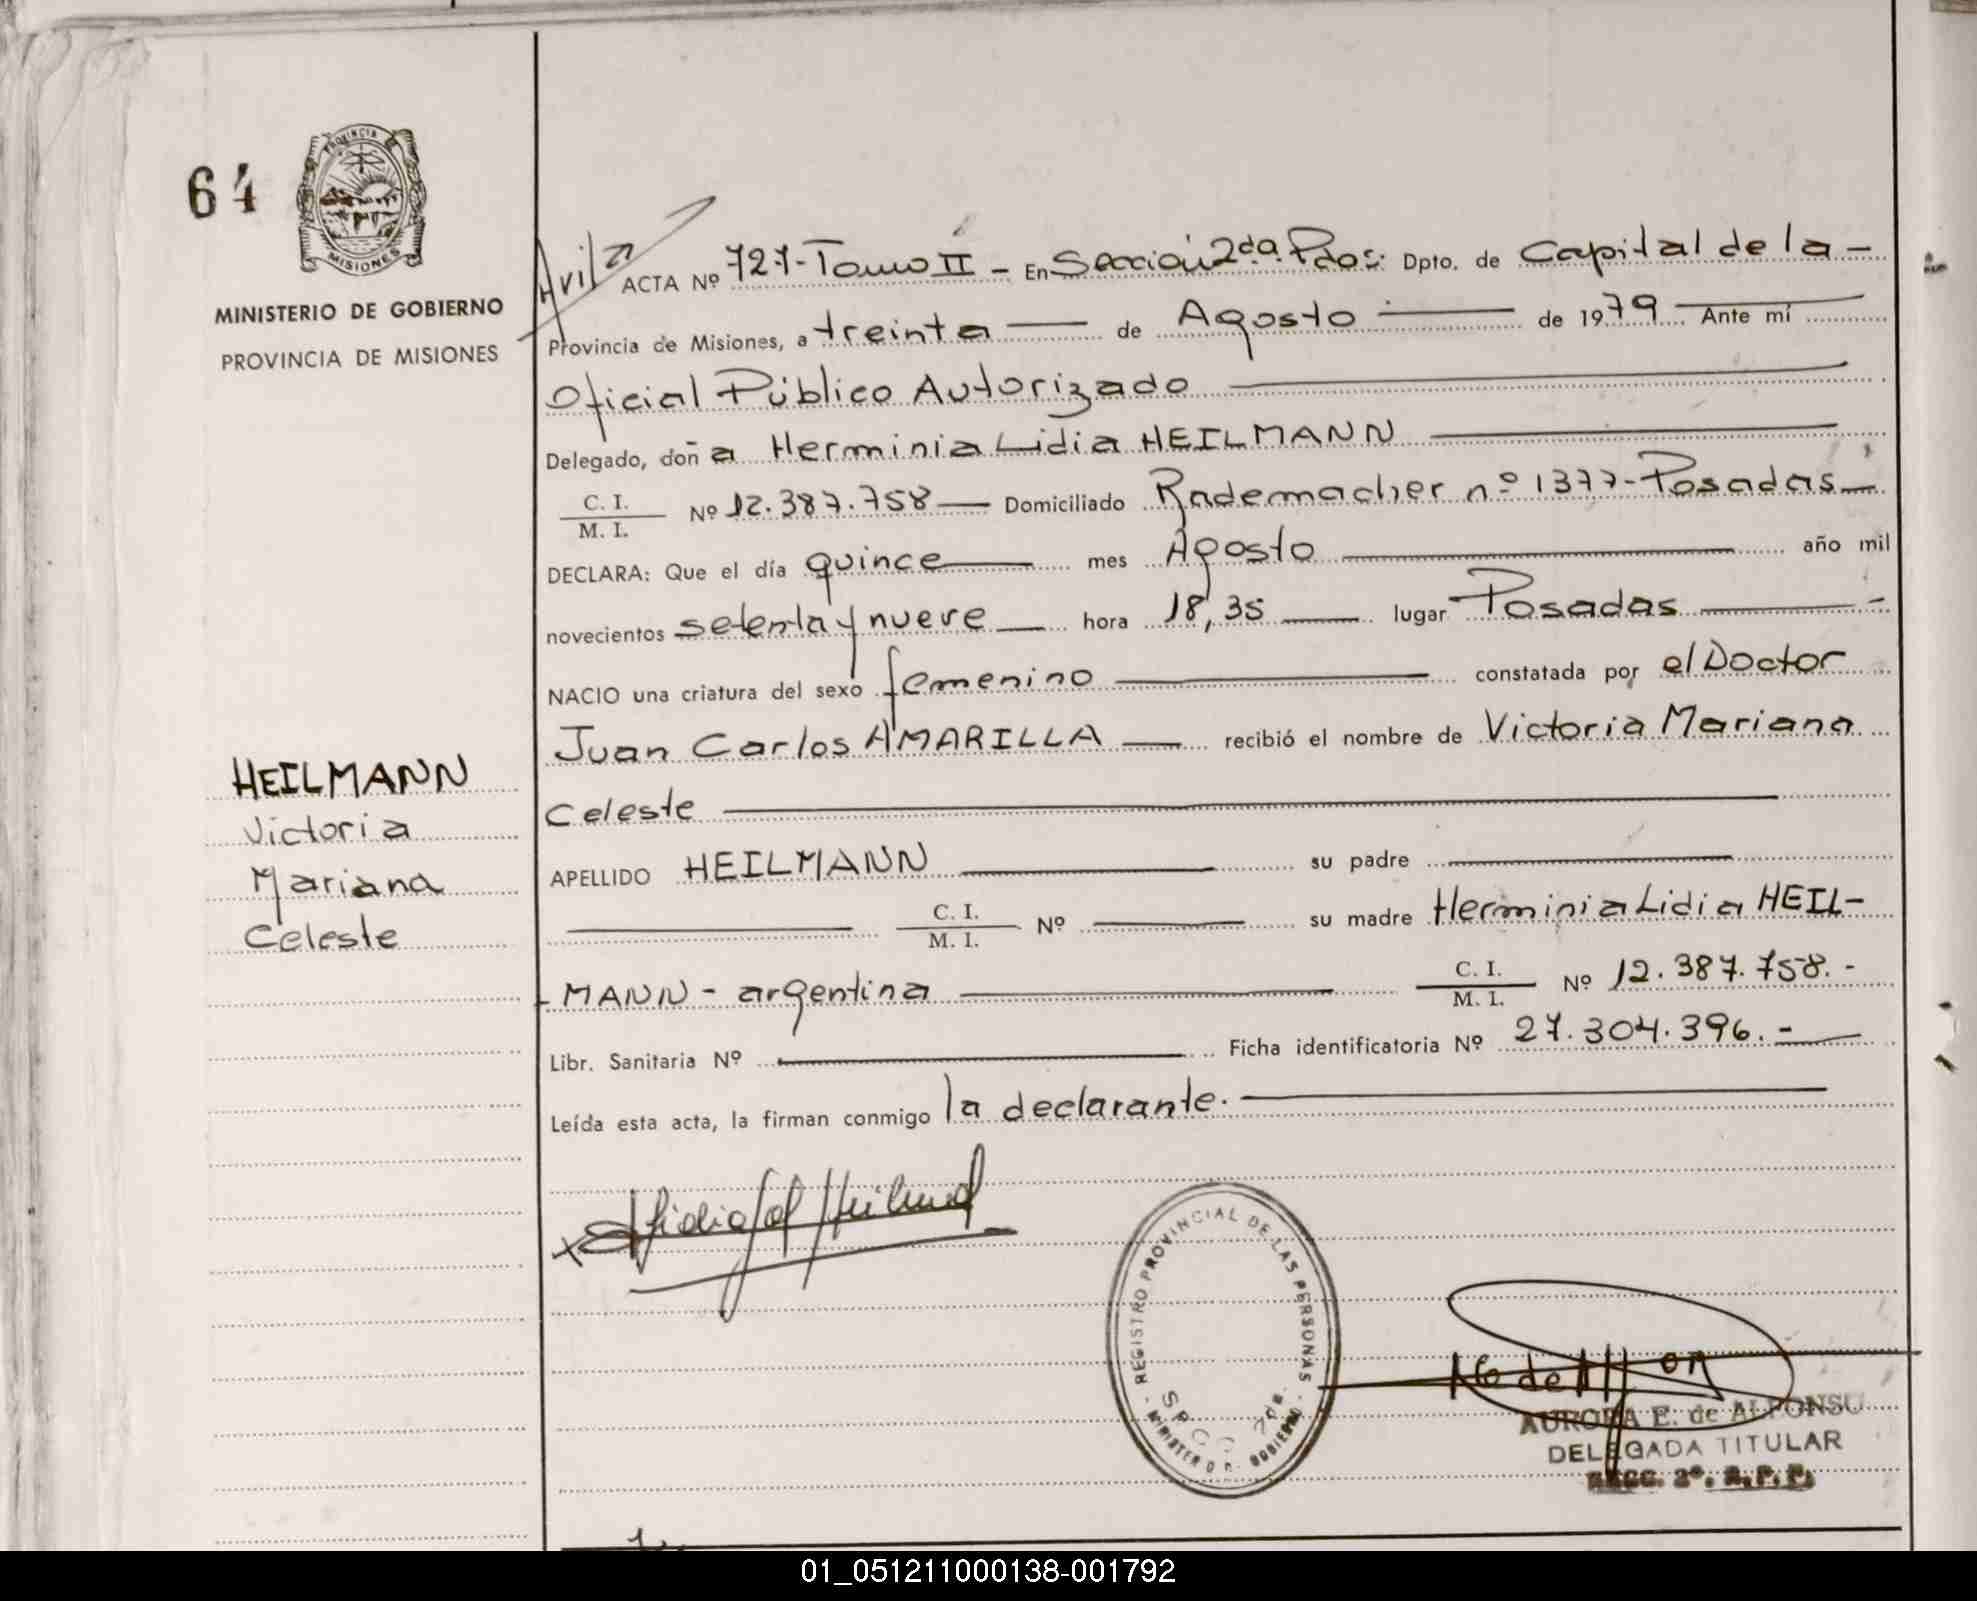 64
PROVINCIA
MISIONES
MINISTERIO DE GOBIERNO
PROVINCIA DE MISIONES
HEILMANN
Victoria
Mariana
Celeste
ACTA Nº 727-Tomo II - En Sección 2da. Pdas. Dpto. de Capital de la -
Provincia de Misiones, a treinta de Agosto de 1979 Ante mí
Oficial Público Autorizado
Delegado, doña Herminia Lidia HEILMANN
C. I.
M. I. Nº 12.387.758 Domiciliado Rademacher nº 1377-Posadas-
DECLARA: Que el día quince mes Agosto año mil
novecientos setenta y nueve hora 18,35 lugar Posadas -
NACIO una criatura del sexo femenino constatada por el Doctor
Juan Carlos AMARILLA recibió el nombre de Victoria Mariana
Celeste
APELLIDO HEILMANN su padre
C. I.
M. I. Nº su madre Herminia Lidia HEIL-
-MANN - argentina C. I.
M. I. Nº 12.387.758.-
Libr. Sanitaria Nº Ficha identificatoria Nº 27.304.396.-
Leída esta acta, la firman conmigo la declarante.
REGISTRO PROVINCIAL DE LAS PERSONAS
AURORA E. de ALFONSO
DELEGADA TITULAR
SECC. 2ª. R.P.P.
01_051211000138-001792